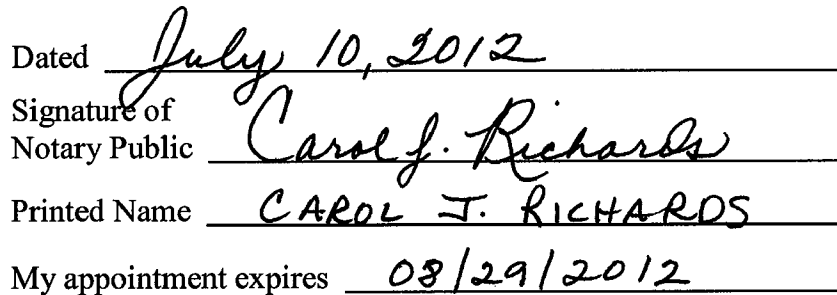 Dated July 10, 2012
Signature of
Notary Public Carol J. Richards
Printed Name CAROL J. RICHARDS
My appointment expires 08/29/2012